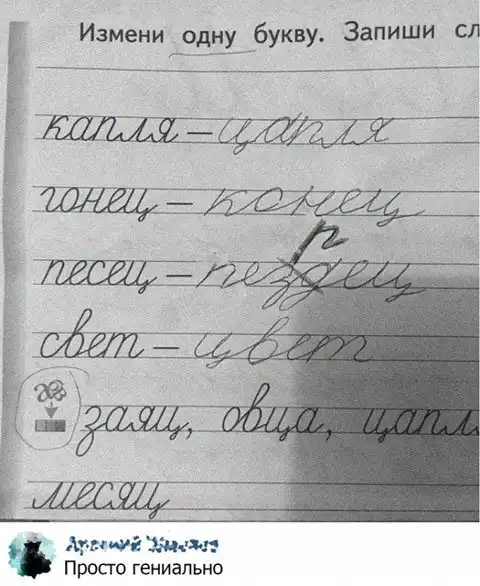 Измени одну букву. Запиши сл
капля – цапля
гонец – конец
р
песец – пездец
свет – цвет
заяц, овца, цапл
месяц
Просто гениально